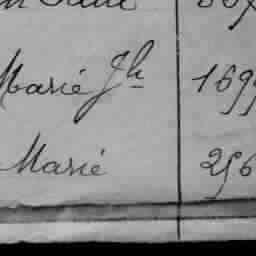 Marié Jh 1699
Marié 256